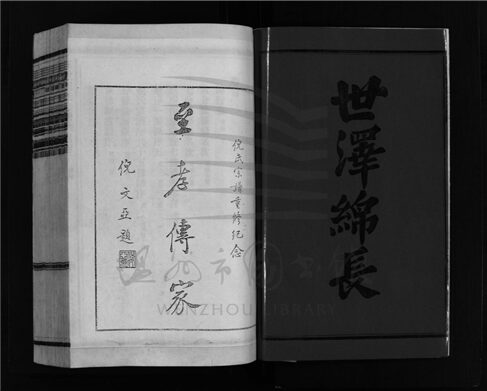 世澤綿長
倪氏宗譜重修紀念
至孝傳家
倪文亞題
温州市图书馆
WENZHOU LIBRARY